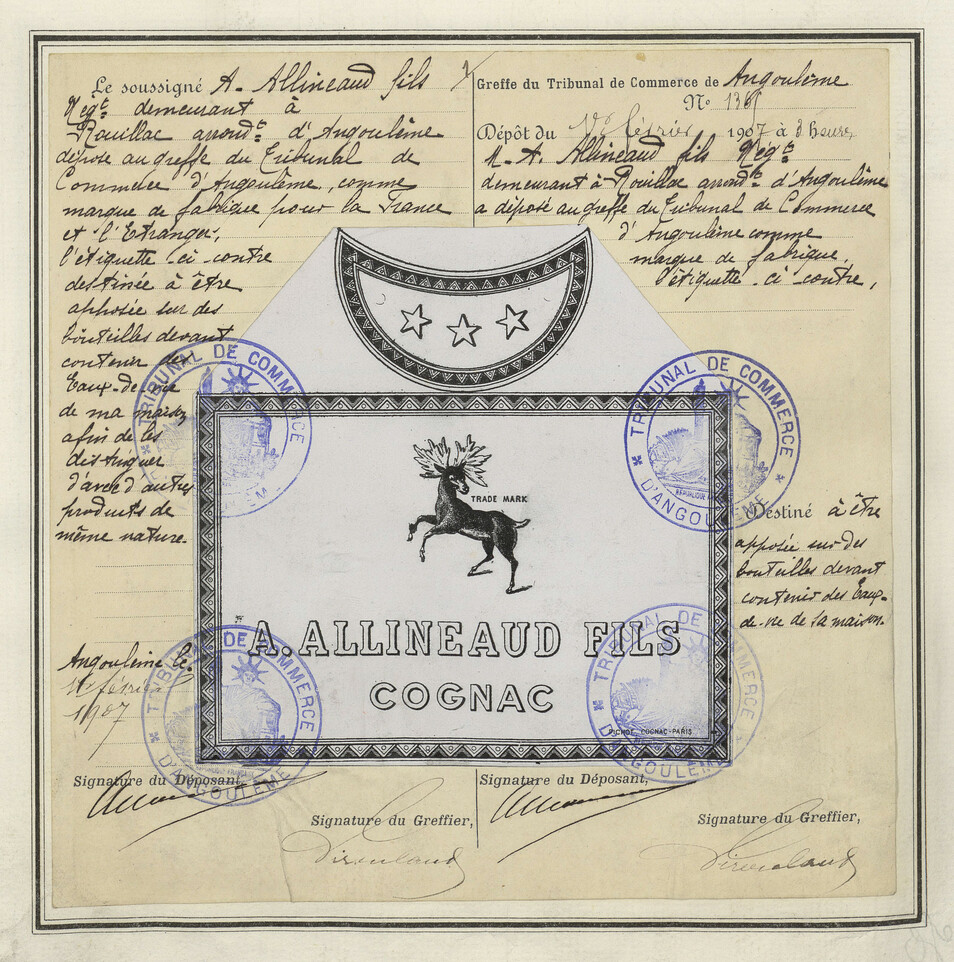 Le soussigné A. Allineaud fils
Negt demeurant à
Rouillac arrondt d'Angoulême
dépose au greffe du Tribunal de
Commerce d'Angoulême, comme
marque de fabrique pour la France
et l'Etranger,
l'étiquette ci contre
destinée à être
apposée sur des
bouteilles devant
contenir des
Eaux-de-vie
de ma maison
afin de les
distinguer
d'avec d'autres
produits de
même nature.
Angoulême le
février
1907
Signature du Déposant,
Signature du Greffier,
Greffe du Tribunal de Commerce de Angoulême
No
Dépôt du février 1907 à heures
M. A. Allineaud fils Negt
demeurant à Rouillac arrondt d'Angoulême
a déposé au greffe du Tribunal de Commerce
d'Angoulême comme
marque de fabrique,
l'étiquette ci contre,
Destiné à être
apposée sur des
bouteilles devant
contenir des Eaux-
de-vie de sa maison.
Signature du Déposant,
Signature du Greffier,
TRADE MARK
A. ALLINEAUD FILS
COGNAC
PICHOT COGNAC-PARIS
TRIBUNAL DE COMMERCE
TRIBUNAL DE COMMERCE
D'ANGOULEME
TRIBUNAL DE COMMERCE
D'ANGOULEME
TRIBUNAL DE COMMERCE
D'ANGOULEME